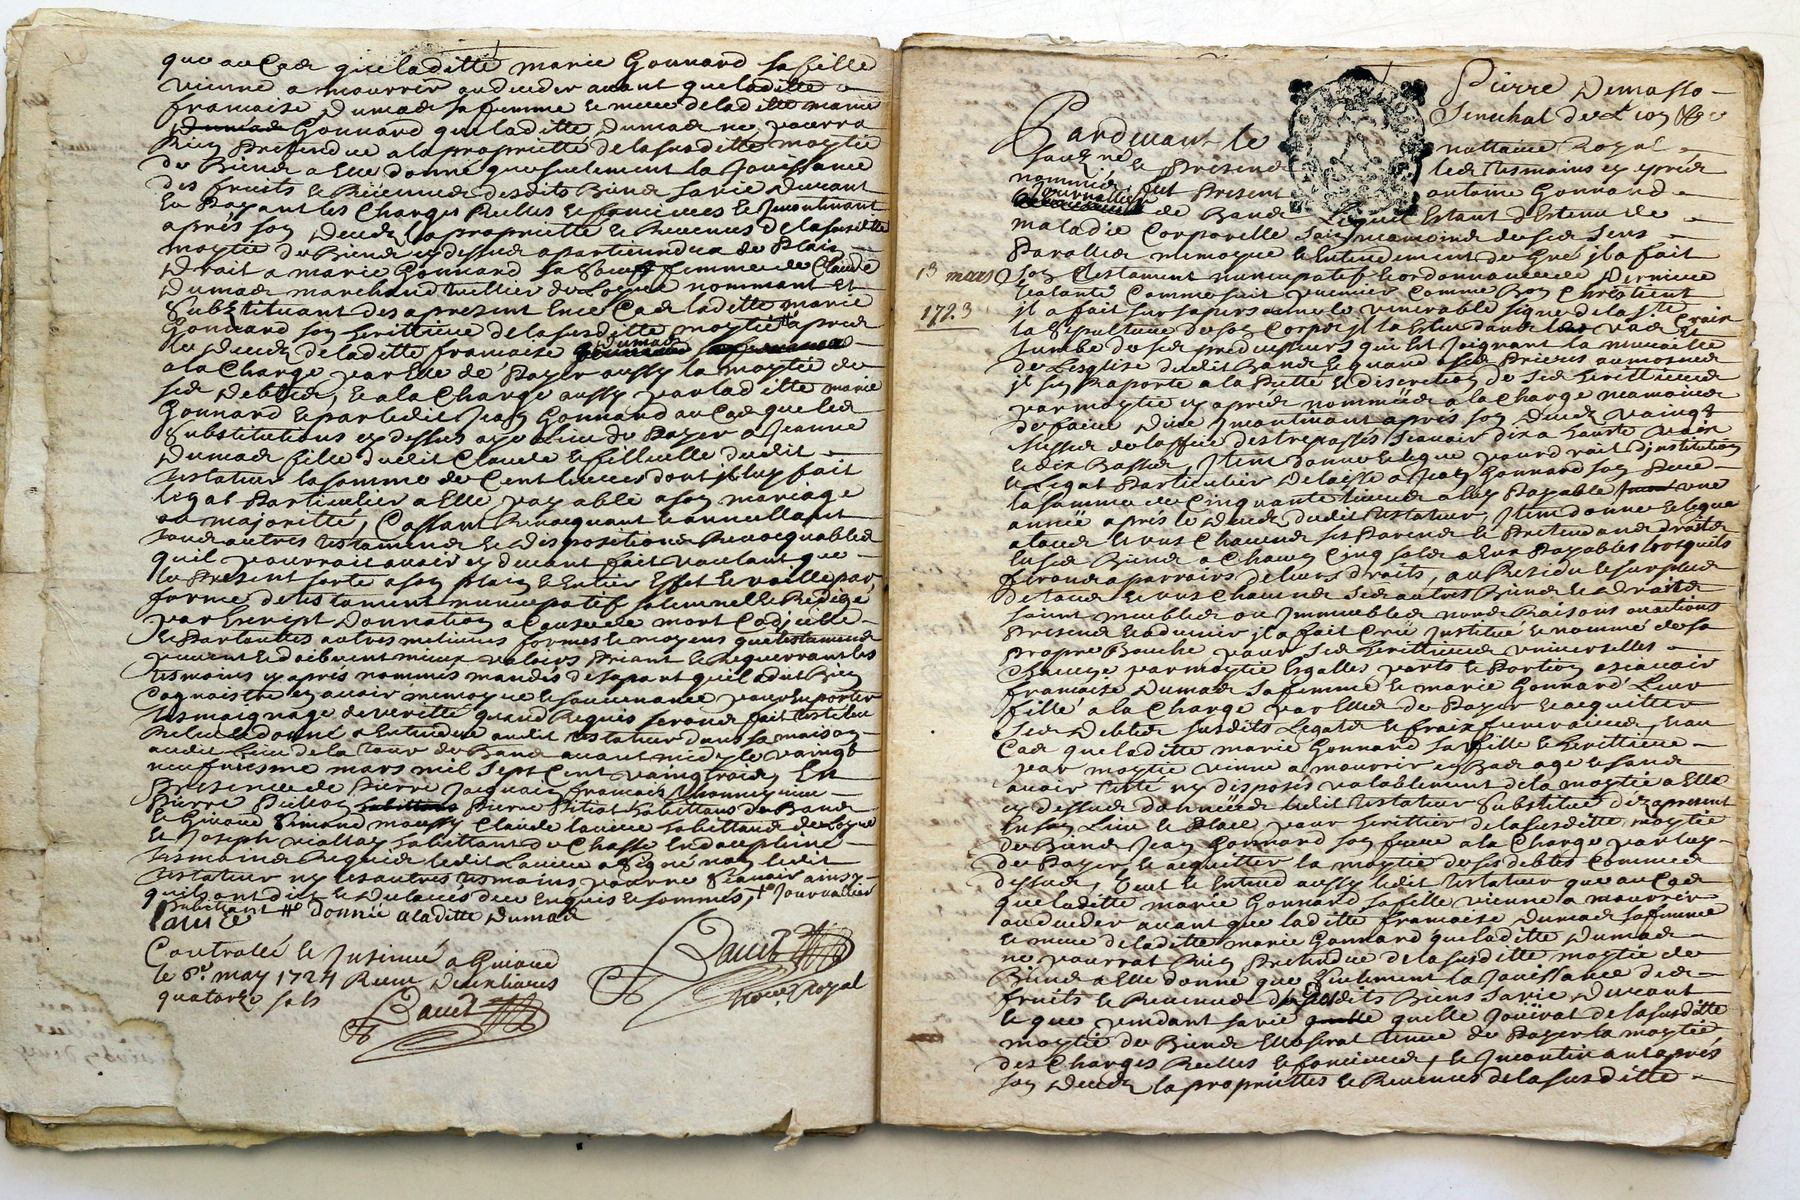 que au Cas que laditte marie Gonnard sa fille
vienne a mourrir ou deceder avant que laditte
francoise Dumas sa femme et mere de laditte marie
Gonnard que laditte Dumas ne pourra
Rien Pretendre a la proprietté de la susditte moytie
de Biens a Elle donné que seulement la Jouissance
des fruits et Revenus desdits Biens sa vie Durant
En Payant les Charges Reelles et foncieres et Incontinant
apres son Deces la proprietté et Revenus de la susditte
moytie de Biens cy dessus apartiendra de Plain
Droit a marie Gonnard sa femme de Claude
Dumas marchand tuillier de Loyre nommant Et
Substituant des apresent En ce Cas laditte marie
Gonnard son heritiere de la susditte moytié apres
le Deces de laditte francoise Dumas
a la Charge par Elle de Payer aussy la moytié de
ses Debtes, et a la Charge aussy par laditte marie
Gonnard et par ledit Jean Gonnard au Cas que les
Substitutions cy dessus aye lieu de Payer a Jeanne
Dumas fille dudit Claude et filleulle dudit
testateur la somme de Cent livres dont il luy fait
legat Particulier a Elle payable a son mariage
ou majorité, Cassant Revocquant et annullant
tous autres testaments et dispositions Revocquables
quil pourrait avoir cy devant fait voulant que
le Present sorte a son plain et Entier Effet et vaille par
forme de testament nuncupatif solemnel et Redigé
par Escript, Donnation a Cause de mort Codicille
et Par touttes autres meilleures formes et moyens que testaments
peuvent et doibvent mieux valoir Priant et Requerrant les
tesmoins cy apres nommés mandés de sa part quil a dit Bien
Cognoistre en avoir memoyre et souvenance pour En porter
tesmoignage de verité quand Requis seront fait testé leu
Releu et donné a Entendre audit testateur dans sa maison
audit lieu de la tour de Bans avant midy le vaingt
neufviesme mars mil sept Cent vaingtrois En
Presence de Pierre Jacquain francois
Pierre Pierre Pitiot habittans de Bans
et Givors Simond moussy Claude laveur habittans de Loyre
et Joseph viallay habittant de Chasse En dauphiné
tesmoins Requis ledit Laveur a signé non ledit
testateur ny les autres tesmoins pour ne Scavoir ainsy
quils ont dit et Declarés de ce Enquis et sommés, Journallier
donnée a laditte Dumas
Controllé et Insinué a Givors
le 8e. may 1724 Receu Deux livres
quatorze sols
nore. royal
Pierre Demasso
Senechal de Lion
Pardevant le nottaire Royal
soubzné et Presents les tesmoins cy apres
nommés fut Present antoine Gonnard
Journallier de Bans Lequel Estant d'Estenu de
maladie Corporelle sain neamoins de ses sens
Parolles memoyre et Entendement de Gré jl a fait
13 mars
1723
son testament nuncupatif et ordonnance de Derniere
volonté Comme suit Premier Comme Bon Chrestient
jl a fait sur sa personne le venerable signe de la Ste. Croix
la Sepulture de son Corps jl la Esleu dans le vas Et
tumbe de ses predecesseurs qui est joignant la muraille
de Lesglise dudit Bans Et quand a ses Prieres aumosnes
jl sen Raporte a la Piette et discretion de ses heritieres
par moytié cy apres nommées a la charge neamoins
de faire Dire Incontinant apres son Deces vaingt
Messes de loffice des trepassés scavoir dix a haute voix
et dix Basses, Item donne et legue par droit d'institution
et Legat Particulier Delaisse a Jean Gonnard son Frere
la somme de Cinquante livres a luy Payable une
année après le Deces dudit testateur, Item donne et legue
a tous et uns Chacuns ses Parents et Pretendans droits
En ses Biens a Chacun Cinq sols a Eux Payables lorsquils
feront aparroirs de leurs droits, au Residu et surplus
de tous et uns Chacuns ses autres Biens et Droits
soient meubles ou Immeubles noms Raisons ou actions
Presents et advenir jl a fait Créé Institué et nommé de sa
Propre Bouche pour ses heritieres universelles
Chacune par moytié Esgalles parts et Portion ascavoir
francoise Dumas sa femme et marie Gonnard Leur
fille a la Charge par Elles de Payer et acquitter
ses Debtes susdits Legats et fraix funeraires, et au
Cas que laditte marie Gonnard sa fille et heritiere
par moytié vienne a mourrir en Bas age et sans
avoir testé ny disposés valablement de la moytié a Elle
cy dessus donnée ledit testateur Substitué diz apresent
En son Lieu et Place pour heritier de la susditte moytié
de Biens Jean Gonnard son frere a la Charge par luy
de Payer et acquitter la moytié de ses debtes Comme
dessus, Veut et Entend aussy ledit testateur que au Cas
que laditte marie Gonnard sa fille vienne a mourrir
ou deceder avant que laditte francoise Dumas sa femme
et mere de laditte marie Gonnard que laditte Dumas
ne pourrat Rien Pretendre de la susditte moytié de
Biens a Elle donné que seulement la Jouissance des
fruits et Revenus desdits Biens sa vie Durant
et que pendant sa vie quelle Jouirat de la susditte
moytié de Biens Elle serat tenue de Payer la moytié
des Charges Reelles et foncieres, et Incontinant apres
son Deces la propriettes et Revenus de la susditte